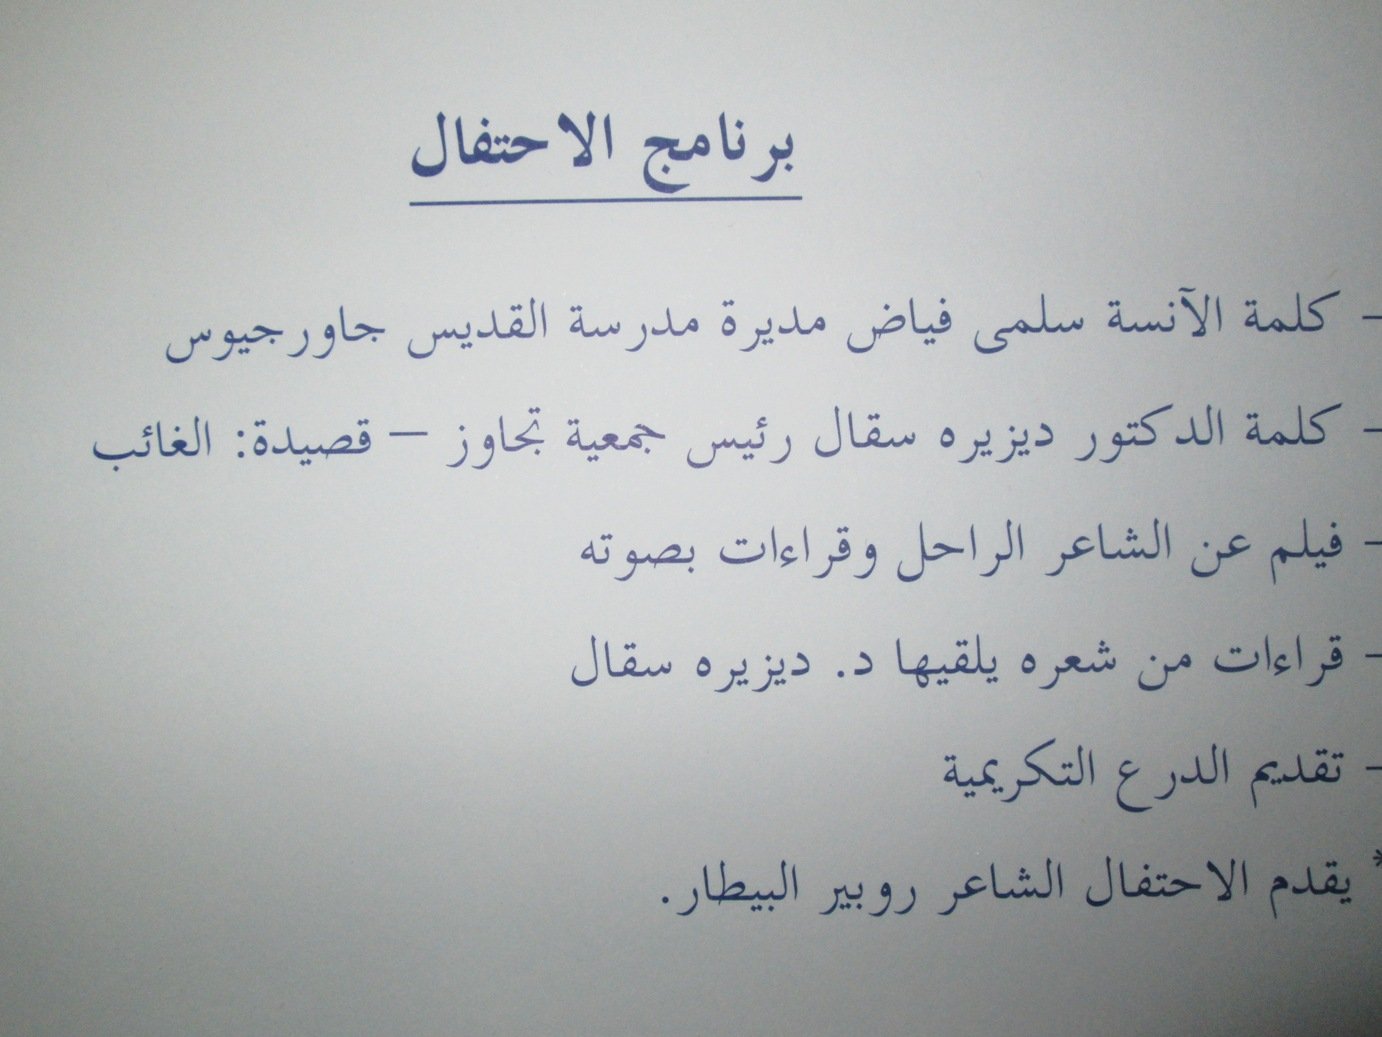 برنامج الاحتفال
- كلمة الآنسة سلمى فياض مديرة مدرسة القديس جاورجيوس
- كلمة الدكتور ديزيره سقال رئيس جمعية تجاوز – قصيدة: الغائب
- فيلم عن الشاعر الراحل وقراءات بصوته
- قراءات من شعره يلقيها د. ديزيره سقال
- تقديم الدرع التكريمية
* يقدم الاحتفال الشاعر روبير البيطار.